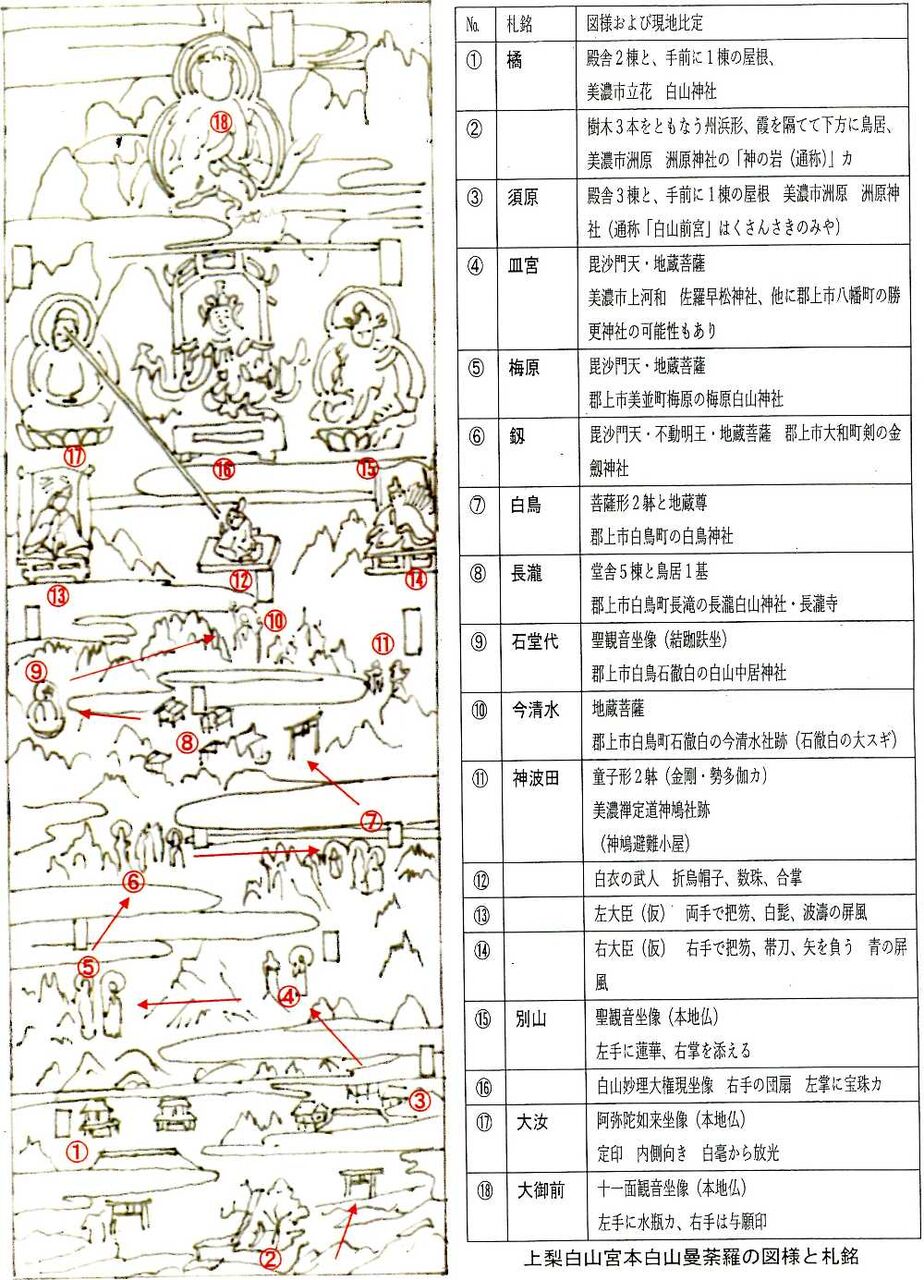 ⑱
⑰
⑯
⑮
⑬
⑫
⑭
⑩
⑪
⑨
⑧
⑦
⑥
⑤
④
③
①
②
No. 札銘 図様および現地比定
① 橘 殿舎2棟と、手前に1棟の屋根、
美濃市立花 白山神社
② 樹木3本をともなう州浜形、霞を隔てて下方に鳥居、
美濃市洲原 洲原神社の「神の岩(通称)」カ
③ 須原 殿舎3棟と、手前に1棟の屋根 美濃市洲原 洲原神
社(通称「白山前宮」はくさんさきのみや)
④ 皿宮 毘沙門天・地蔵菩薩
美濃市上河和 佐羅早松神社、他に郡上市八幡町の勝
更神社の可能性もあり
⑤ 梅原 毘沙門天・地蔵菩薩
郡上市美並町梅原の梅原白山神社
⑥ 釼 毘沙門天・不動明王・地蔵菩薩 郡上市大和町剣の金
劔神社
⑦ 白鳥 菩薩形2躰と地蔵尊
郡上市白鳥町の白鳥神社
⑧ 長瀧 堂舎5棟と鳥居1基
郡上市白鳥町長滝の長瀧白山神社・長瀧寺
⑨ 石堂代 聖観音坐像(結跏趺坐)
郡上市白鳥石徹白の白山中居神社
⑩ 今清水 地蔵菩薩
郡上市白鳥町石徹白の今清水社跡(石徹白の大スギ)
⑪ 神波田 童子形2躰(金剛・勢多伽カ)
美濃禅定道神鳩社跡
(神鳩避難小屋)
⑫ 白衣の武人 折烏帽子、数珠、合掌
⑬ 左大臣(仮) 両手で把笏、白髭、波濤の屏風
⑭ 右大臣(仮) 右手で把笏、帯刀、矢を負う 青の屏
風
⑮ 別山 聖観音坐像(本地仏)
左手に蓮華、右掌を添える
⑯ 白山妙理大権現坐像 右手の団扇 左掌に宝珠カ
⑰ 大汝 阿弥陀如来坐像(本地仏)
定印 内側向き 白毫から放光
⑱ 大御前 十一面観音坐像(本地仏)
左手に水瓶カ、右手は与願印
上梨白山宮本白山曼荼羅の図様と札銘